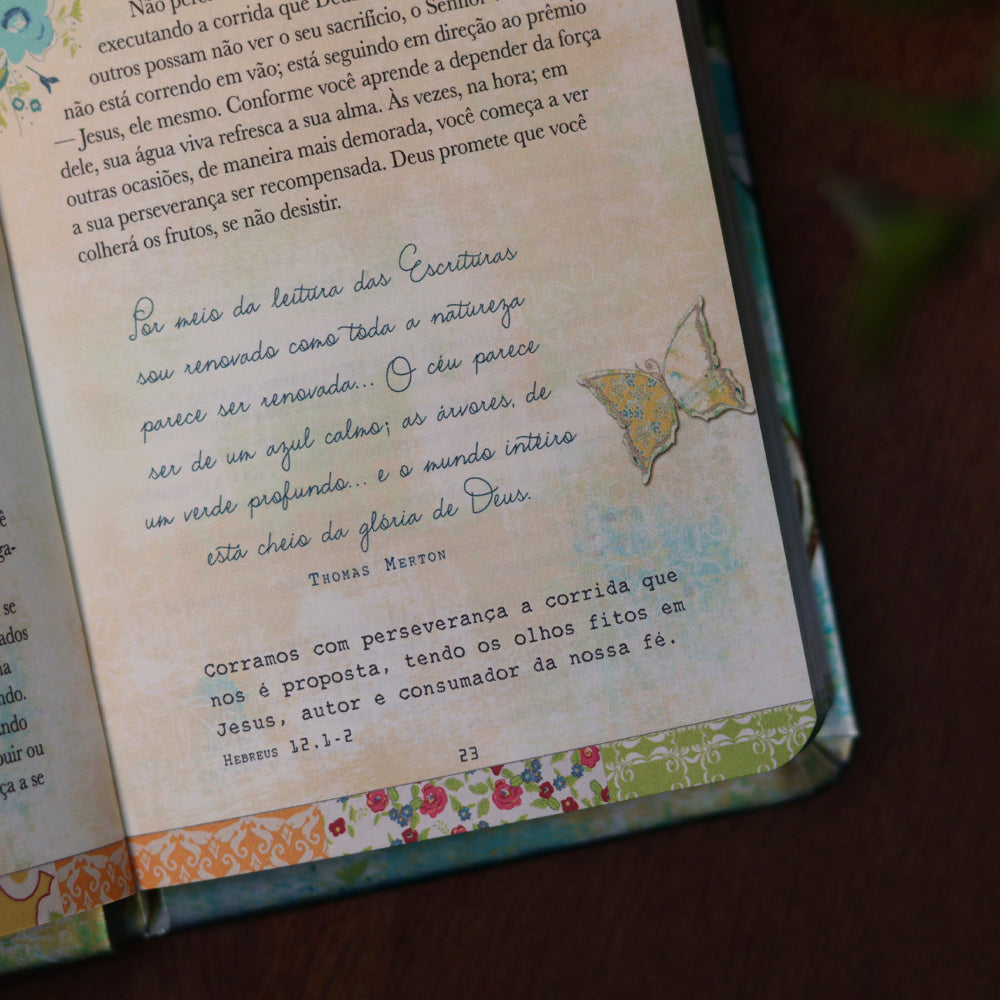 Não
executando a corrida que Deus
outros possam não ver o seu sacrifício, o Senhor
não está correndo em vão; está seguindo em direção ao prêmio
— Jesus, ele mesmo. Conforme você aprende a depender da força
dele, sua água viva refresca a sua alma. Às vezes, na hora; em
outras ocasiões, de maneira mais demorada, você começa a ver
a sua perseverança ser recompensada. Deus promete que você
colherá os frutos, se não desistir.
Por meio da leitura das Escrituras
sou renovado como toda a natureza
parece ser renovada... O céu parece
ser de um azul calmo; as árvores, de
um verde profundo... e o mundo inteiro
está cheio da glória de Deus.
Thomas Merton
Corramos com perseverança a corrida que
nos é proposta, tendo os olhos fitos em
Jesus, autor e consumador da nossa fé.
Hebreus 12.1-2
23
ê
ga-
se
ados
na
ndo.
ando
buir ou
ça a se